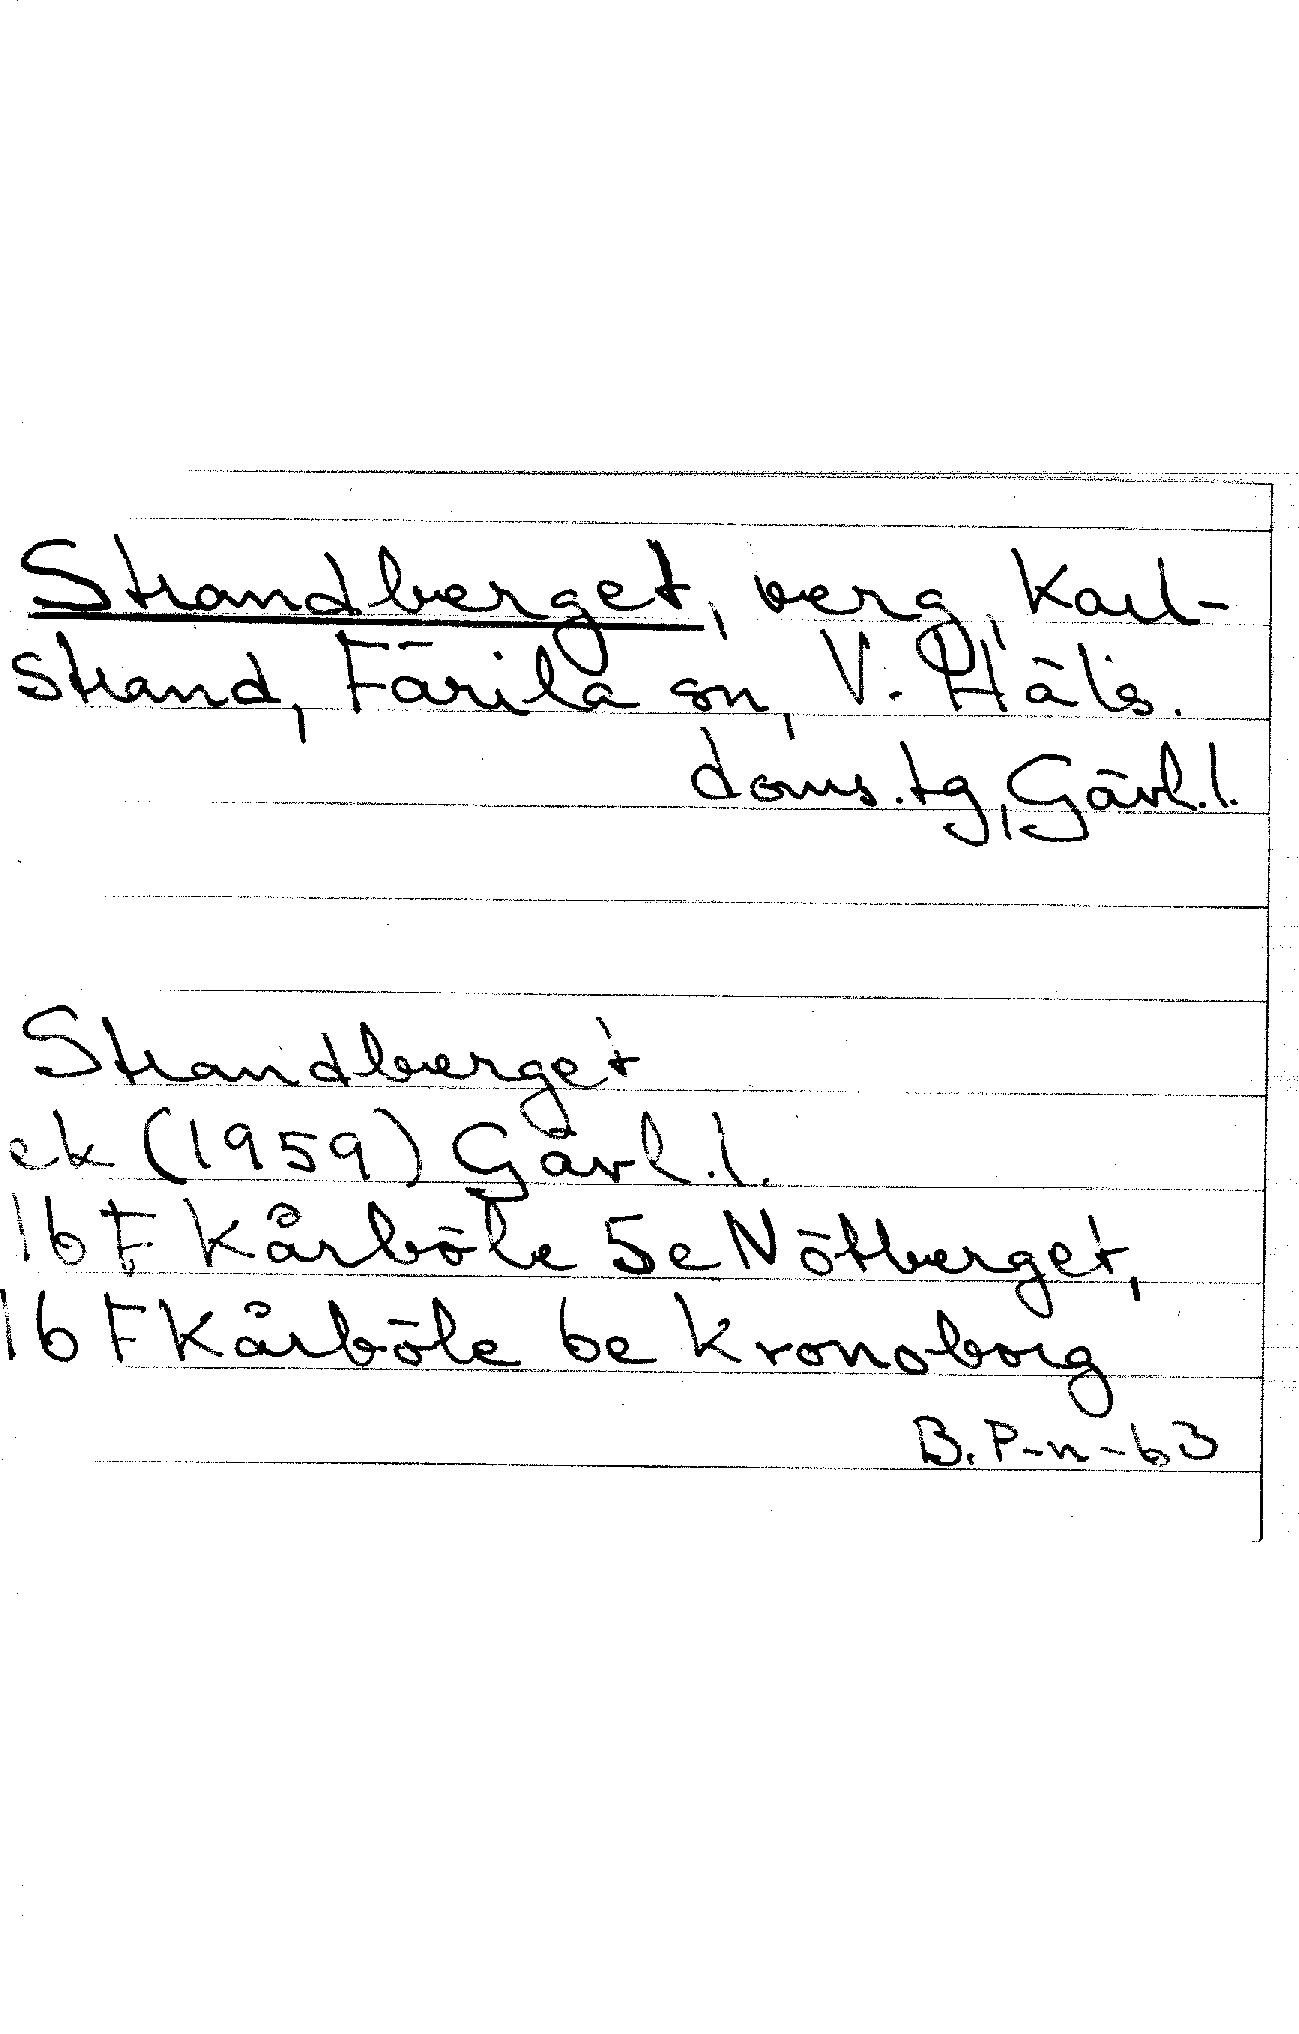 Strandberget, berg, Karl-
strand, Färila sn, V. Häls.
doms.tg, Gävl.l.
Strandberget
ek (1959) Gävl.l.
16 F Kårböle 5e Nötberget,
16 F Kårböle 6e Kronoborg
B. P-n-63